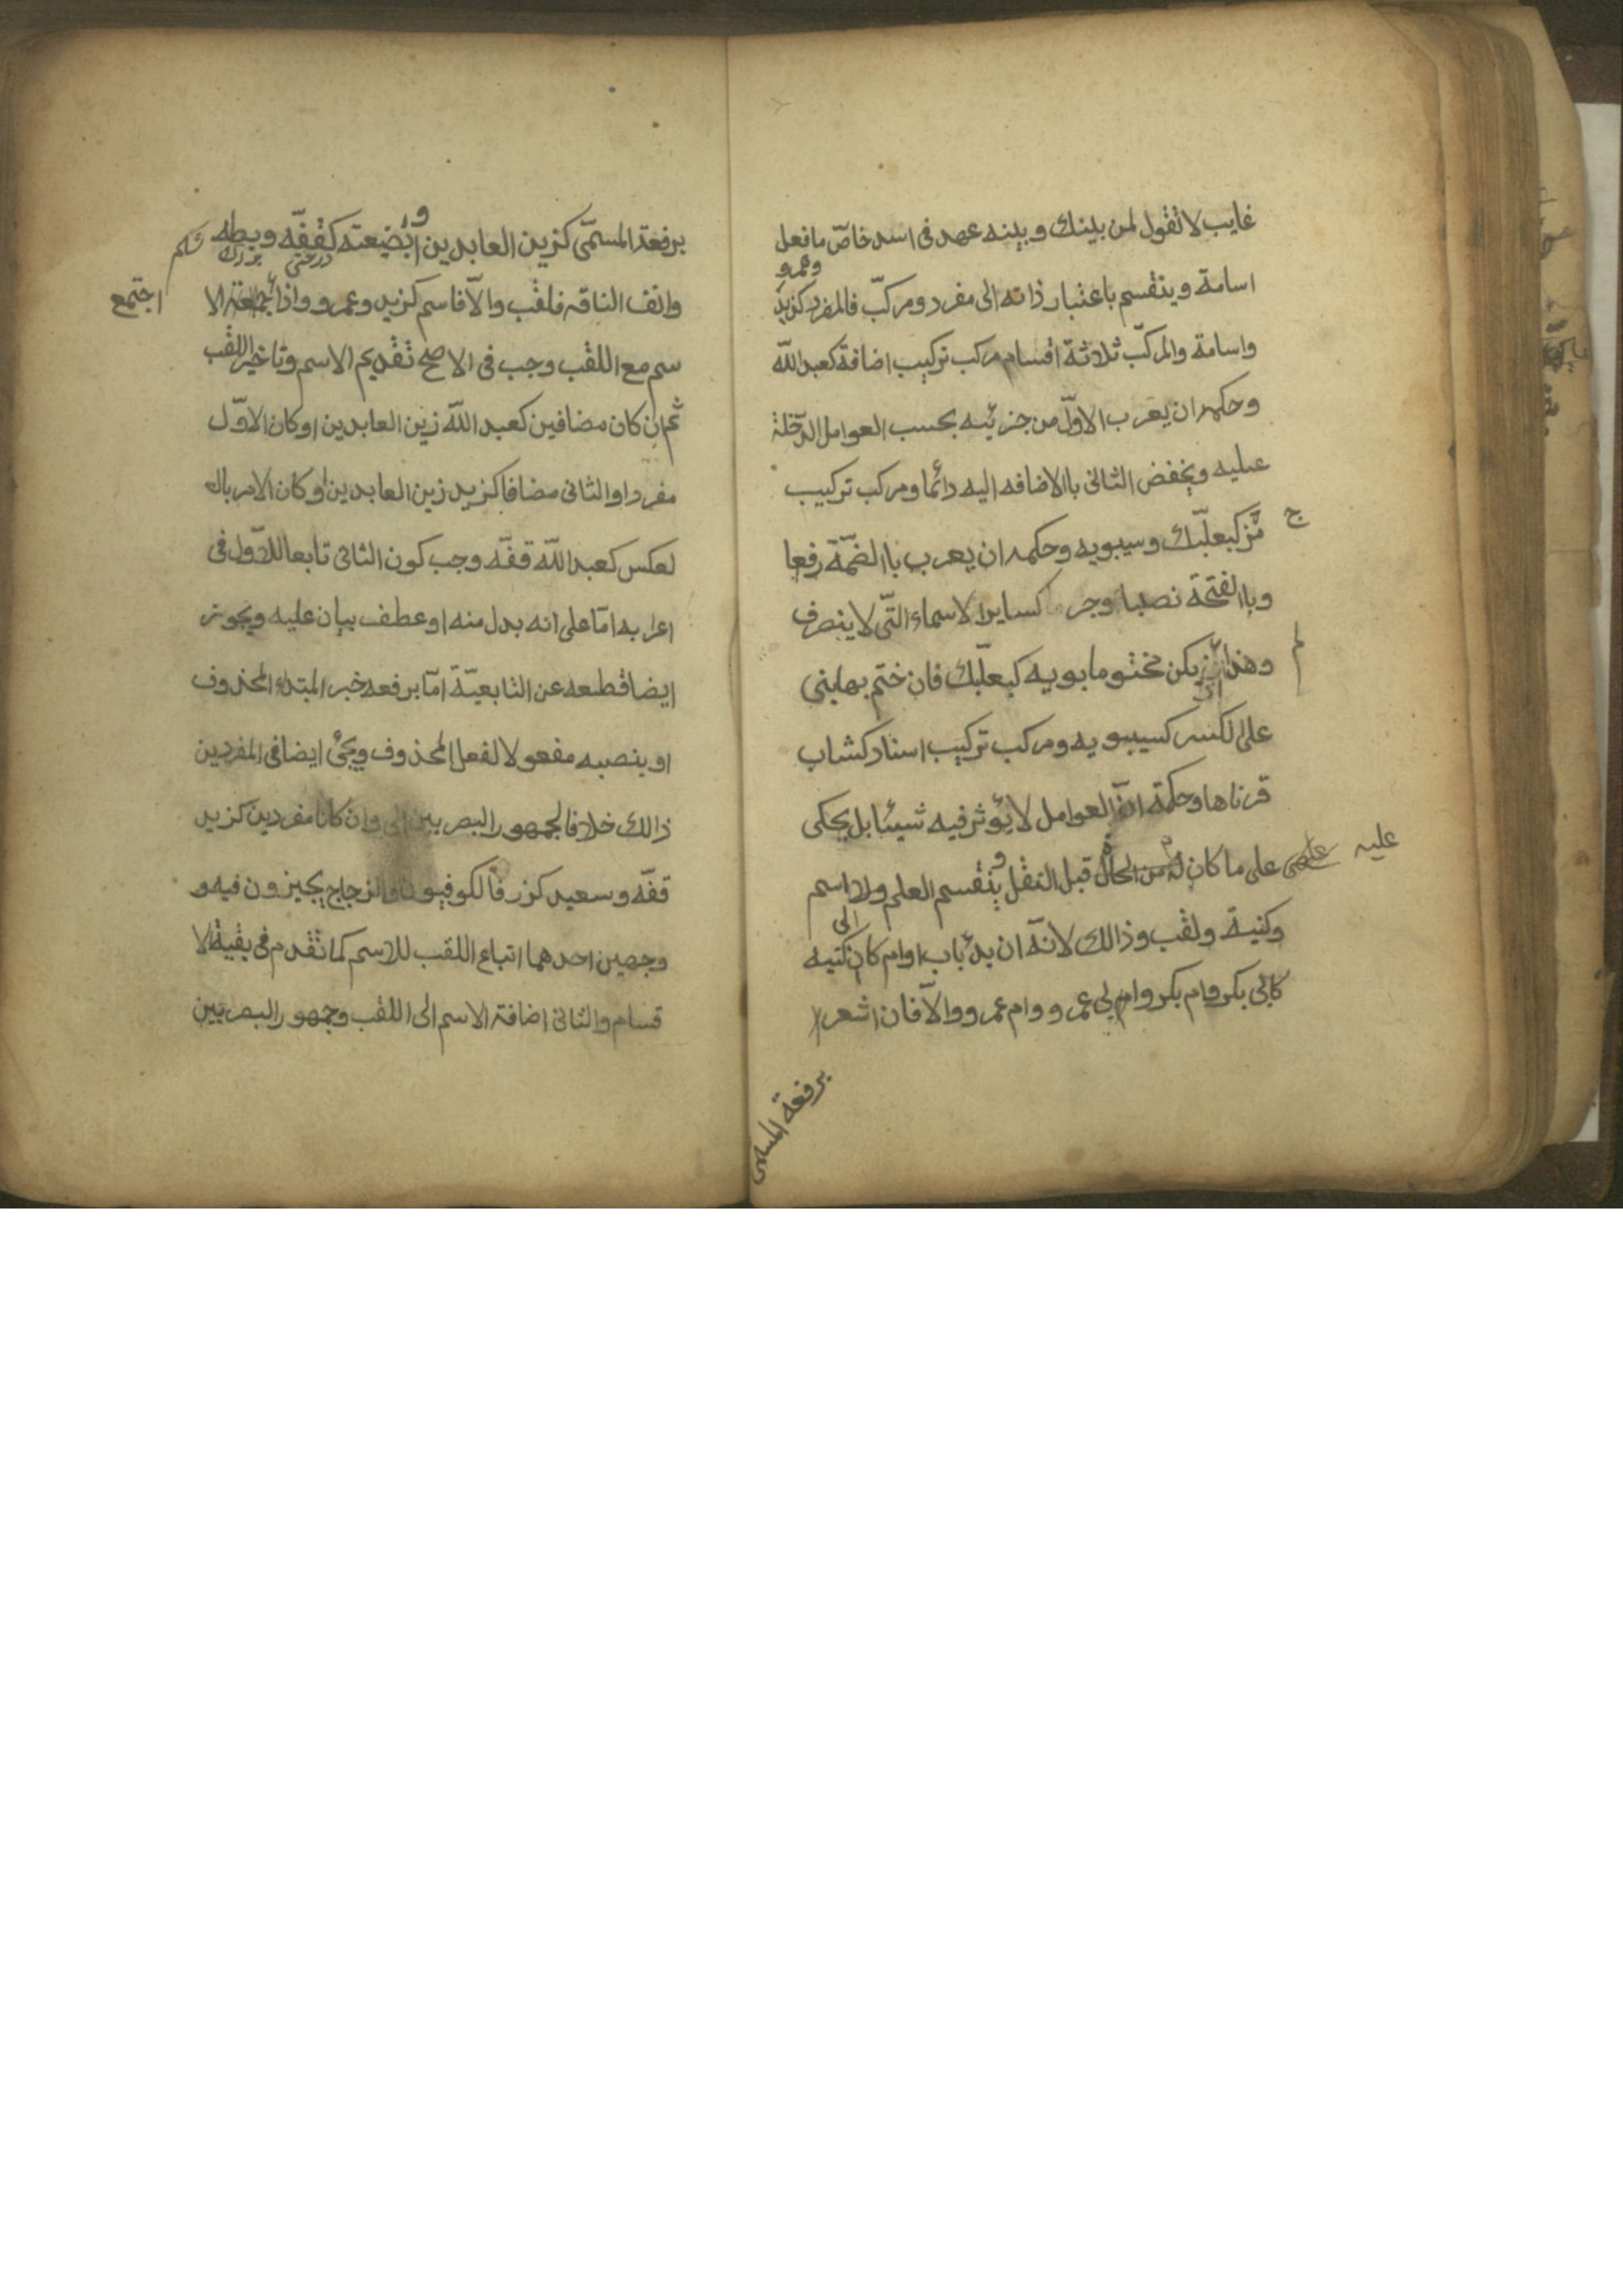 غايب لا تقول لمن بينك وبينه عهد فى اسد خاصّ ما فعل
وعمرو
اسامة وينقسم باعتبار ذاته الى مفرد ومركبّ فالمفرد كزيد
واسامة والمركبّ ثلاثة اقسام مركب تركيب اضافة كعبد اللّه
وحكمه ان يعرب الاوّل من جزئيه بحسب العوامل الدّخلة
عليه ويخفض الثانى باالاضافه اليه دائما ومركب تركيب
ج
مّز كبعلبّك وسيبويه وحكمه ان يعرب باالضمّة رفعا
وباالفتحة نصبا وجر كساير الاسماء التّى لا ينصرف
لم
وهذا ان يكن مختوما بويه كبعلّبك فان ختم بها بنى
على الكسر كسيبويه ومركب تركيب اسناد كشاب
قرناها وحكمة انّ العوامل لا يؤثر فيه شيئا بل يحكى
عليه
على ما كان من الحال قبل النقل وينقسم العلم ولا اسم
الى
وكنية ولقب وذالك لانّه ان بدئ باب او ام كان كنيه
كابى بكر وام بكر وابى عمرو وام عمرو والاّ فان اشعر
برفعة المسمى
برفعة المسمّى كزين العابدين او بضيعته كقفّه وبطه
وانف الناقه فلقب والاّ فاسم كزيد وعمرو واذا الا
اجتمع
سم مع اللقب وجب فى الاصح تقديم الاسم وتاخير اللقب
ثم ان كان مضافين كعبد اللّه زين العابدين او كان الاوّل
مفردا والثانى مضافا كزيد زين العابدين او كان الامر باك
لعكس كعبد اللّه قفّه وجب كون الثانى تابعا للاوّل فى
اعرابه امّا على انه بدل منه او عطف بيان عليه ويجوز
ايضا قطعه عن التابعيّة امّا برفعه خبر المبتداء المحذوف
او ينصبه مفعولا لفعل المحذوف ويجئ ايضا فى المفردين
ذالك خلافا لجمهور البصريين وان كانا مفردين كزيد
قفّه وسعيد كزر فالكوفيون والزجاج يجيزون فيه و
وجهين احدهما اتباع اللقب للاسم كما تقدم فى بقية الا
قسام والثانى اضافة الاسم الى اللقب وجمهور البصريين